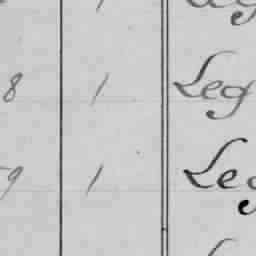 8 1 Leg
9 1 Leg